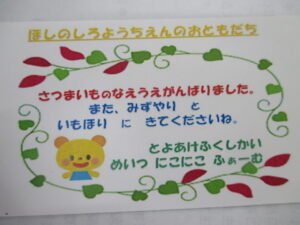 ほしのしろようちえんのおともだち
さつまいものなえうえがんばりました。
また、みずやり と
いもほり に きてくださいね。
とよあけふくしかい
めいつ にこにこ ふぁーむ